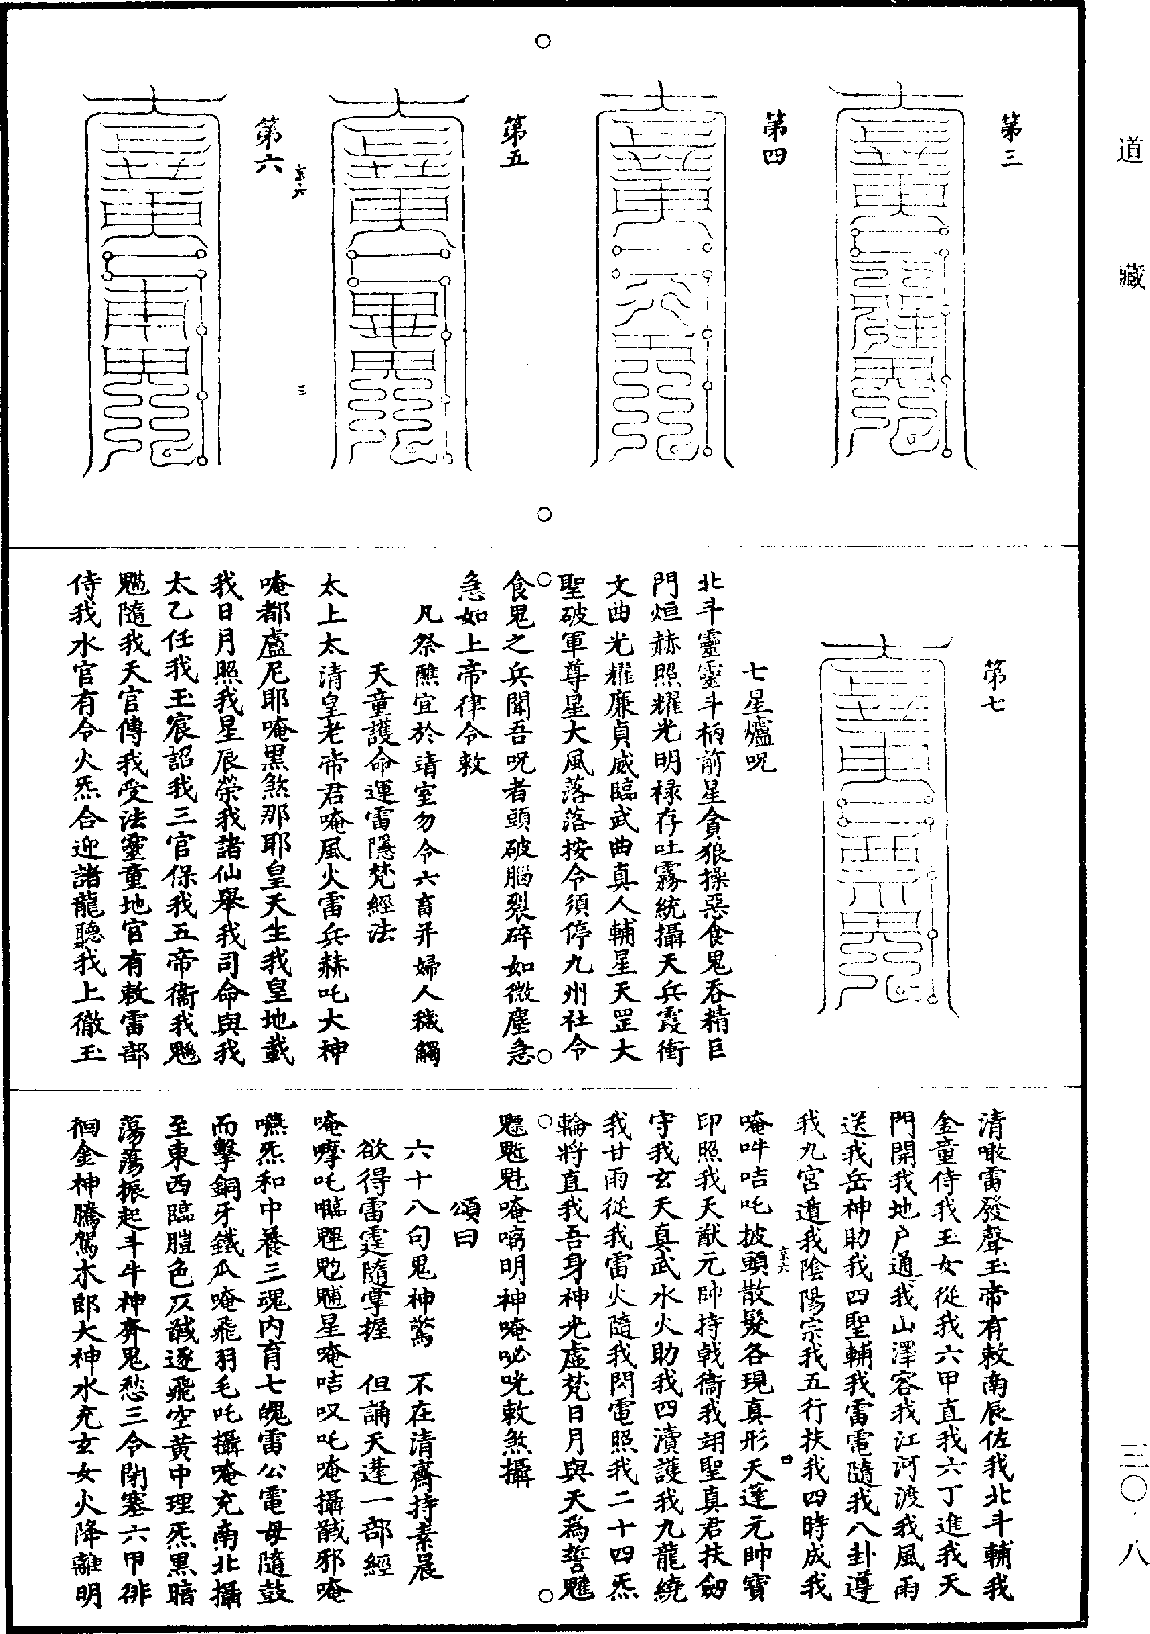 道藏
第三
第四
第五
第六
第七
七星爐呪
北斗靈靈斗柄前星貪狼操惡食鬼吞精巨
門烜赫照耀光明祿存吐霧統攝天兵霞衝
文曲光耀廉貞威臨武曲真人輔星天罡大
聖破軍尊星大風落落按令須停九州社令
食鬼之兵聞吾呪者頭破腦裂碎如微塵急
急如上帝律令敕
凡祭醮宜於靖室勿令六畜并婦人穢觸
天童護命運雷隱梵經法
太上太清皇老帝君唵風火雷兵赫吒大神
唵都盧尼耶唵黑煞那耶皇天生我皇地載
我日月照我星辰榮我諸仙舉我司命與我
太乙任我玉宸詔我三官保我五帝衛我魁
隨我天官傳我受法靈童地官有敕雷部
侍我水官有令火炁合迎諸龍聽我上徹玉
清嗷雷發聲玉帝有敕南辰佐我北斗輔我
金童侍我玉女從我六甲直我六丁進我天
門開我地户通我山澤容我江河渡我風雨
送我岳神助我四聖輔我雷電隨我八卦遵
我九宮遁我陰陽宗我五行扶我四時成我
唵吽咭吒披頭散髮各現真形天蓬元帥寶
印照我天猷元帥持戟衛我翊聖真君扶劒
守我玄天真武水火助我四瀆護我九龍繞
我甘雨從我雷火隨我閃電照我二十四炁
輪將直我吾身神光虛梵日月與天為誓魋
魁唵嘀明神唵吣咣敕煞攝
頌曰
六十八句鬼神驚　不在清齋持素晨
欲得雷霆隨掌握　但誦天蓬一部經
唵嚤吒星唵咭叹吒唵攝馘邪唵
嚥炁和中養三魂內育七魄雷公電母隨鼓
而擊銅牙鐵瓜唵飛羽毛吒攝唵充南北攝
至東西臨色仄馘逐飛空黃中理炁黑暗
蕩蕩振起斗牛神奔鬼愁三令閉塞六甲徘
徊金神騰駕水郎大神水充玄女火降離明
三〇·八